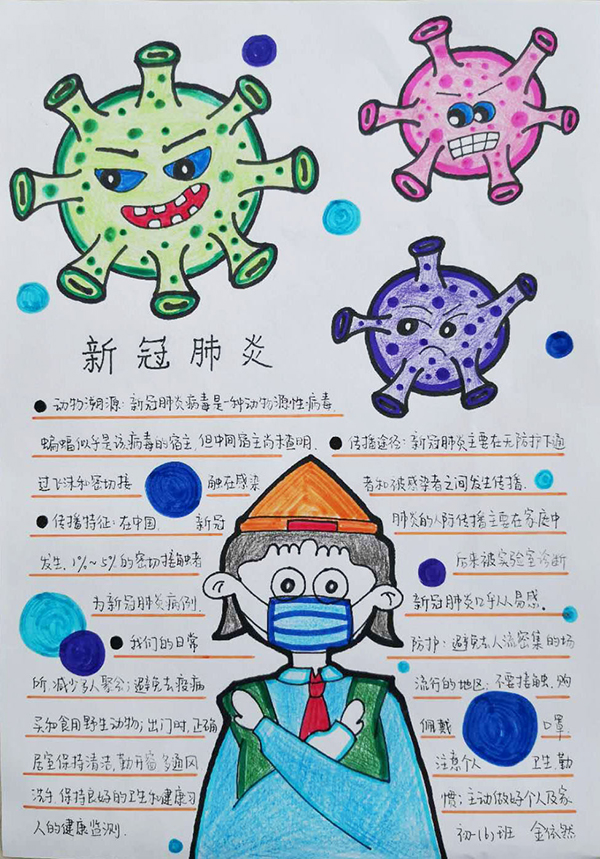 新冠肺炎
● 动物溯源: 新冠肺炎病毒是一种动物源性病毒,
蝙蝠似乎是该病毒的宿主,但中间宿主尚未查明. ● 传播途径: 新冠肺炎主要在无防护下通
过飞沫和密切接 触在感染 者和被感染者之间发生传播.
● 传播特征: 在中国, 新冠 肺炎的人际传播主要在家庭中
发生, 1%~5%的密切接触者 后来被实验室诊断
为新冠肺炎病例. 新冠肺炎几乎人人易感.
● 我们的日常 防护: 避免去人流密集的场
所,减少多人聚会; 避免去疫病 流行的地区; 不要接触、购
买和食用野生动物; 出门时,正确 佩戴 口罩.
居室保持清洁,勤开窗多通风 注意个人 卫生,勤
洗手,保持良好的卫生和健康习 惯; 主动做好个人及家
人的健康监测. 初一(6)班 金依然